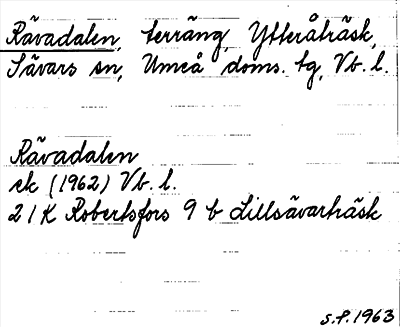 Rävadalen, terräng, Ytteråträsk,
Sävars sn, Umeå doms. tg, Vb. l.
Rävadalen
ek (1962) Vb. l.
21K Robertsfors 9 b Lillsävarträsk
S.P. 1963